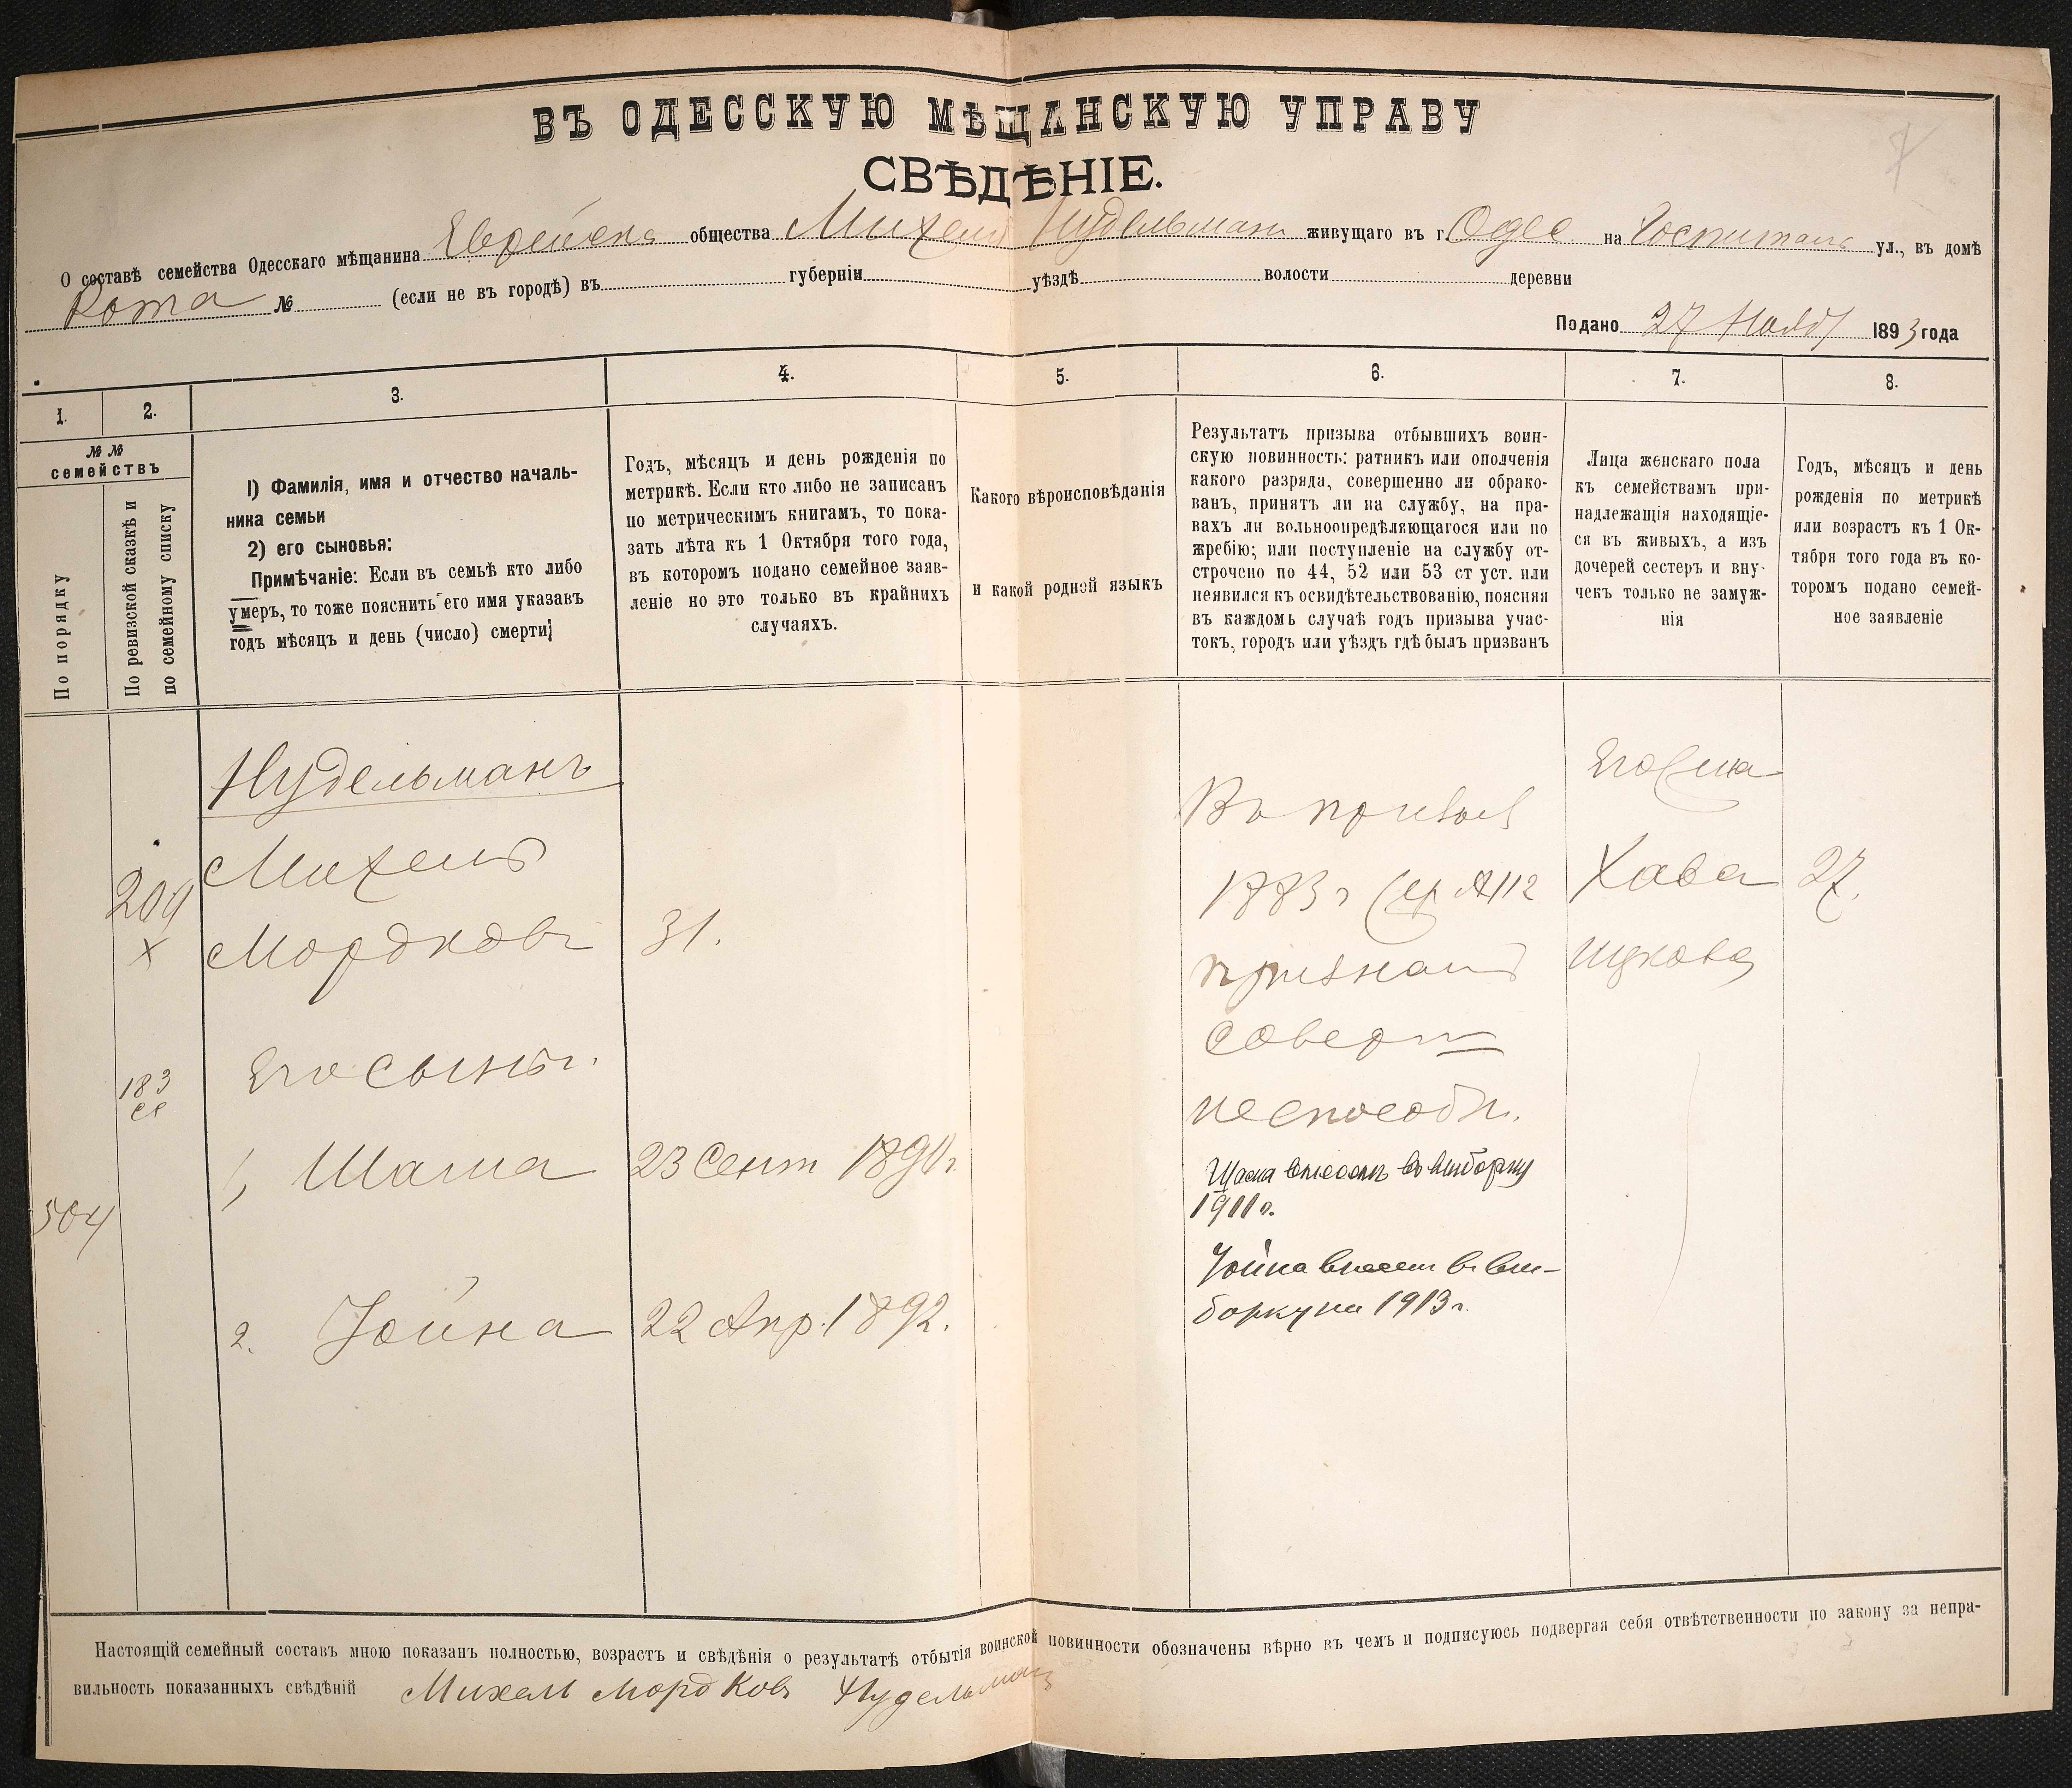 ВЪ ОДЕССКУЮ МѢЩАНСКУЮ УПРАВУ
СВѢДѢНІЕ.
О составѣ семейства Одесскаго мѣщанина Еврейска общества Михель Нудельман живущаго въ г. Одес на Госпиталь ул., въ домѣ
Кота № (если не въ городѣ) въ губерніи уѣздѣ волости деревни
Подано 27 Нояб 1893 года
1. 2. 3. 4. 5. 6. 7. 8.
№ №
семействъ
По порядку
По ревизской сказкѣ и
по семейному списку
1) Фамилія, имя и отчество началь-
ника семьи
2) его сыновья:
Примѣчаніе: Если въ семьѣ кто либо
умеръ, то тоже пояснить его имя указавъ
годъ мѣсяцъ и день (число) смерти;
Годъ, мѣсяцъ и день рожденія по
метрикѣ. Если кто либо не записанъ
по метрическимъ книгамъ, то пока-
зать лѣта къ 1 Октября того года,
въ которомъ подано семейное заяв-
леніе но это только въ крайнихъ
случаяхъ.
Какого вѣроисповѣданія
и какой родной языкъ
Результатъ призыва отбывшихъ воин-
скую повинность: ратникъ или ополченія
какого разряда, совершенно ли обрако-
ванъ, принятъ ли на службу, на пра-
вахъ ли вольноопредѣляющагося или по
жребію; или поступленіе на службу от-
строчено по 44, 52 или 53 ст уст. или
неявился къ освидѣтельствованію, поясняя
въ каждомъ случаѣ годъ призыва учас-
токъ, городъ или уѣздъ гдѣ былъ призванъ
Лица женскаго пола
къ семействамъ при-
надлежащія находящіе-
ся въ живыхъ, а изъ
дочерей сестеръ и вну-
чекъ только не замуж-
нія
Годъ, мѣсяцъ и день
рожденія по метрикѣ
или возрастъ къ 1 Ок-
тября того года въ ко-
торомъ подано семей-
ное заявленіе
Нудельманъ
Михель
209
х
Мордковъ
31.
183
Его сыны.
1, Шама
23 Сент
504
2. Іойна
22 Апр. 1892.
Въ призыв
1883 г №112
признанъ
соверш
неспособн.
Шама внесенъ въ выборку
1911 г.
Іойна внесен въ вы-
борку на 1913 г.
Его жена
Хава
27.
Ицкова
Настоящій семейный составъ мною показанъ полностью, возрастъ и свѣдѣнія о результатѣ отбытія воинской повинности обозначены вѣрно въ чемъ и подписуюсь подвергая себя отвѣтственности по закону за непра-
вильность показанныхъ свѣдѣній Михель Мордковъ Нудельманъ